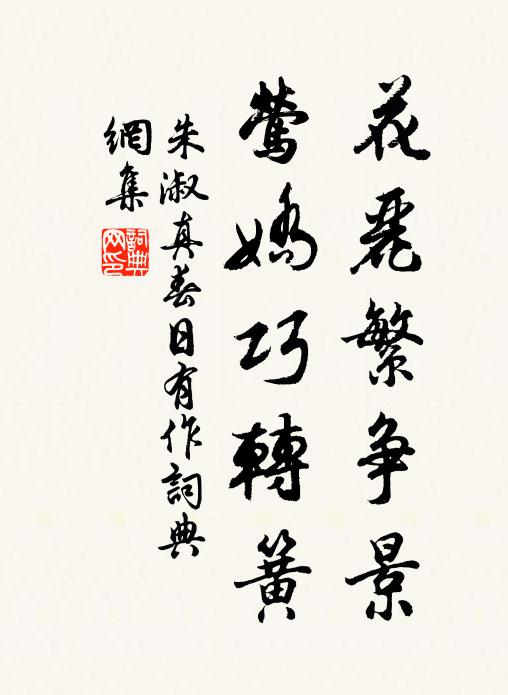 花麗繁争景
鶯嬌巧轉簧
朱淑真春日有作詞典
網集
詞典网印